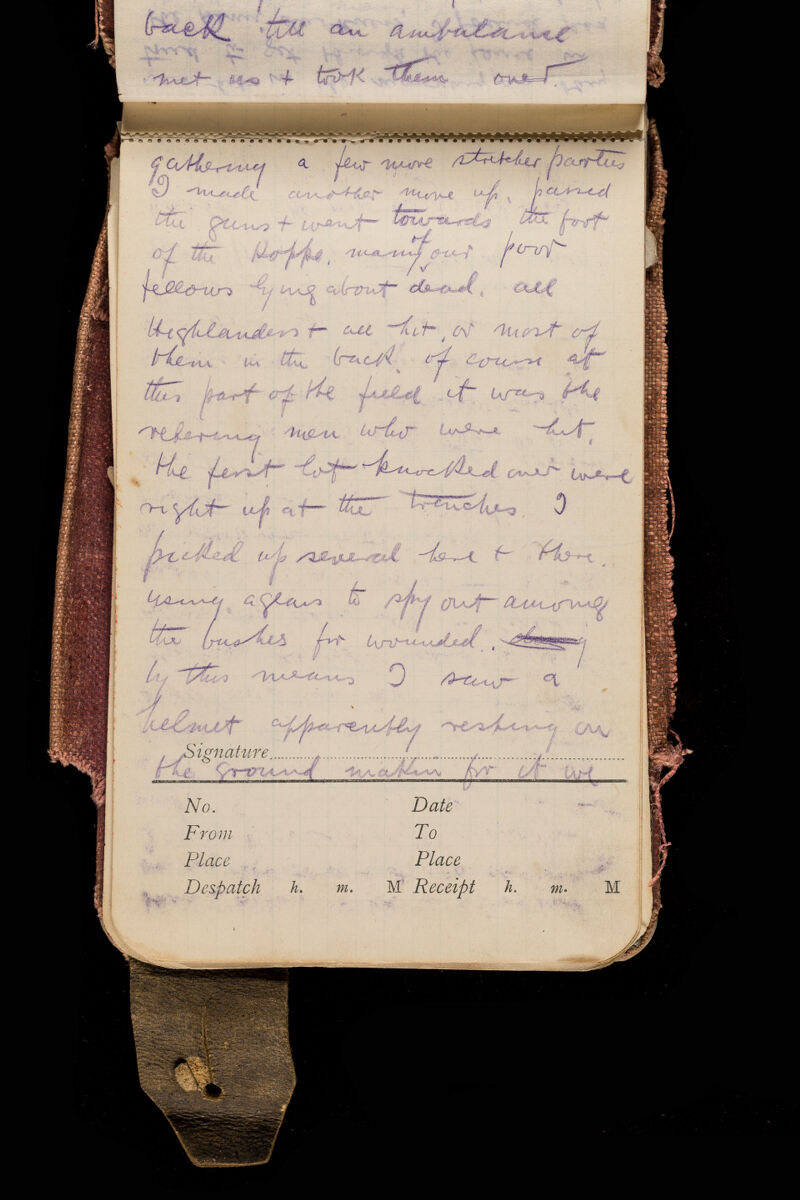 back till an ambulance
met us + took them over.
gathering a few more stretcher parties
I made another move up, passed
the guns + went towards the foot
of the Koppe, many of our poor
fellows lying about dead, all
Highlanders + all hit, or most of
them in the back, of course at
this part of the field it was the
retering men who were hit,
the first lot knocked over were
right up at the trenches I
picked up several here + there,
using a glass to spy out among
the bushes for wounded.
by this means I saw a
helmet apparently resting on
Signature
the ground makin for it we
No. Date
From To
Place Place
Despatch h. m. M Receipt h. m. M